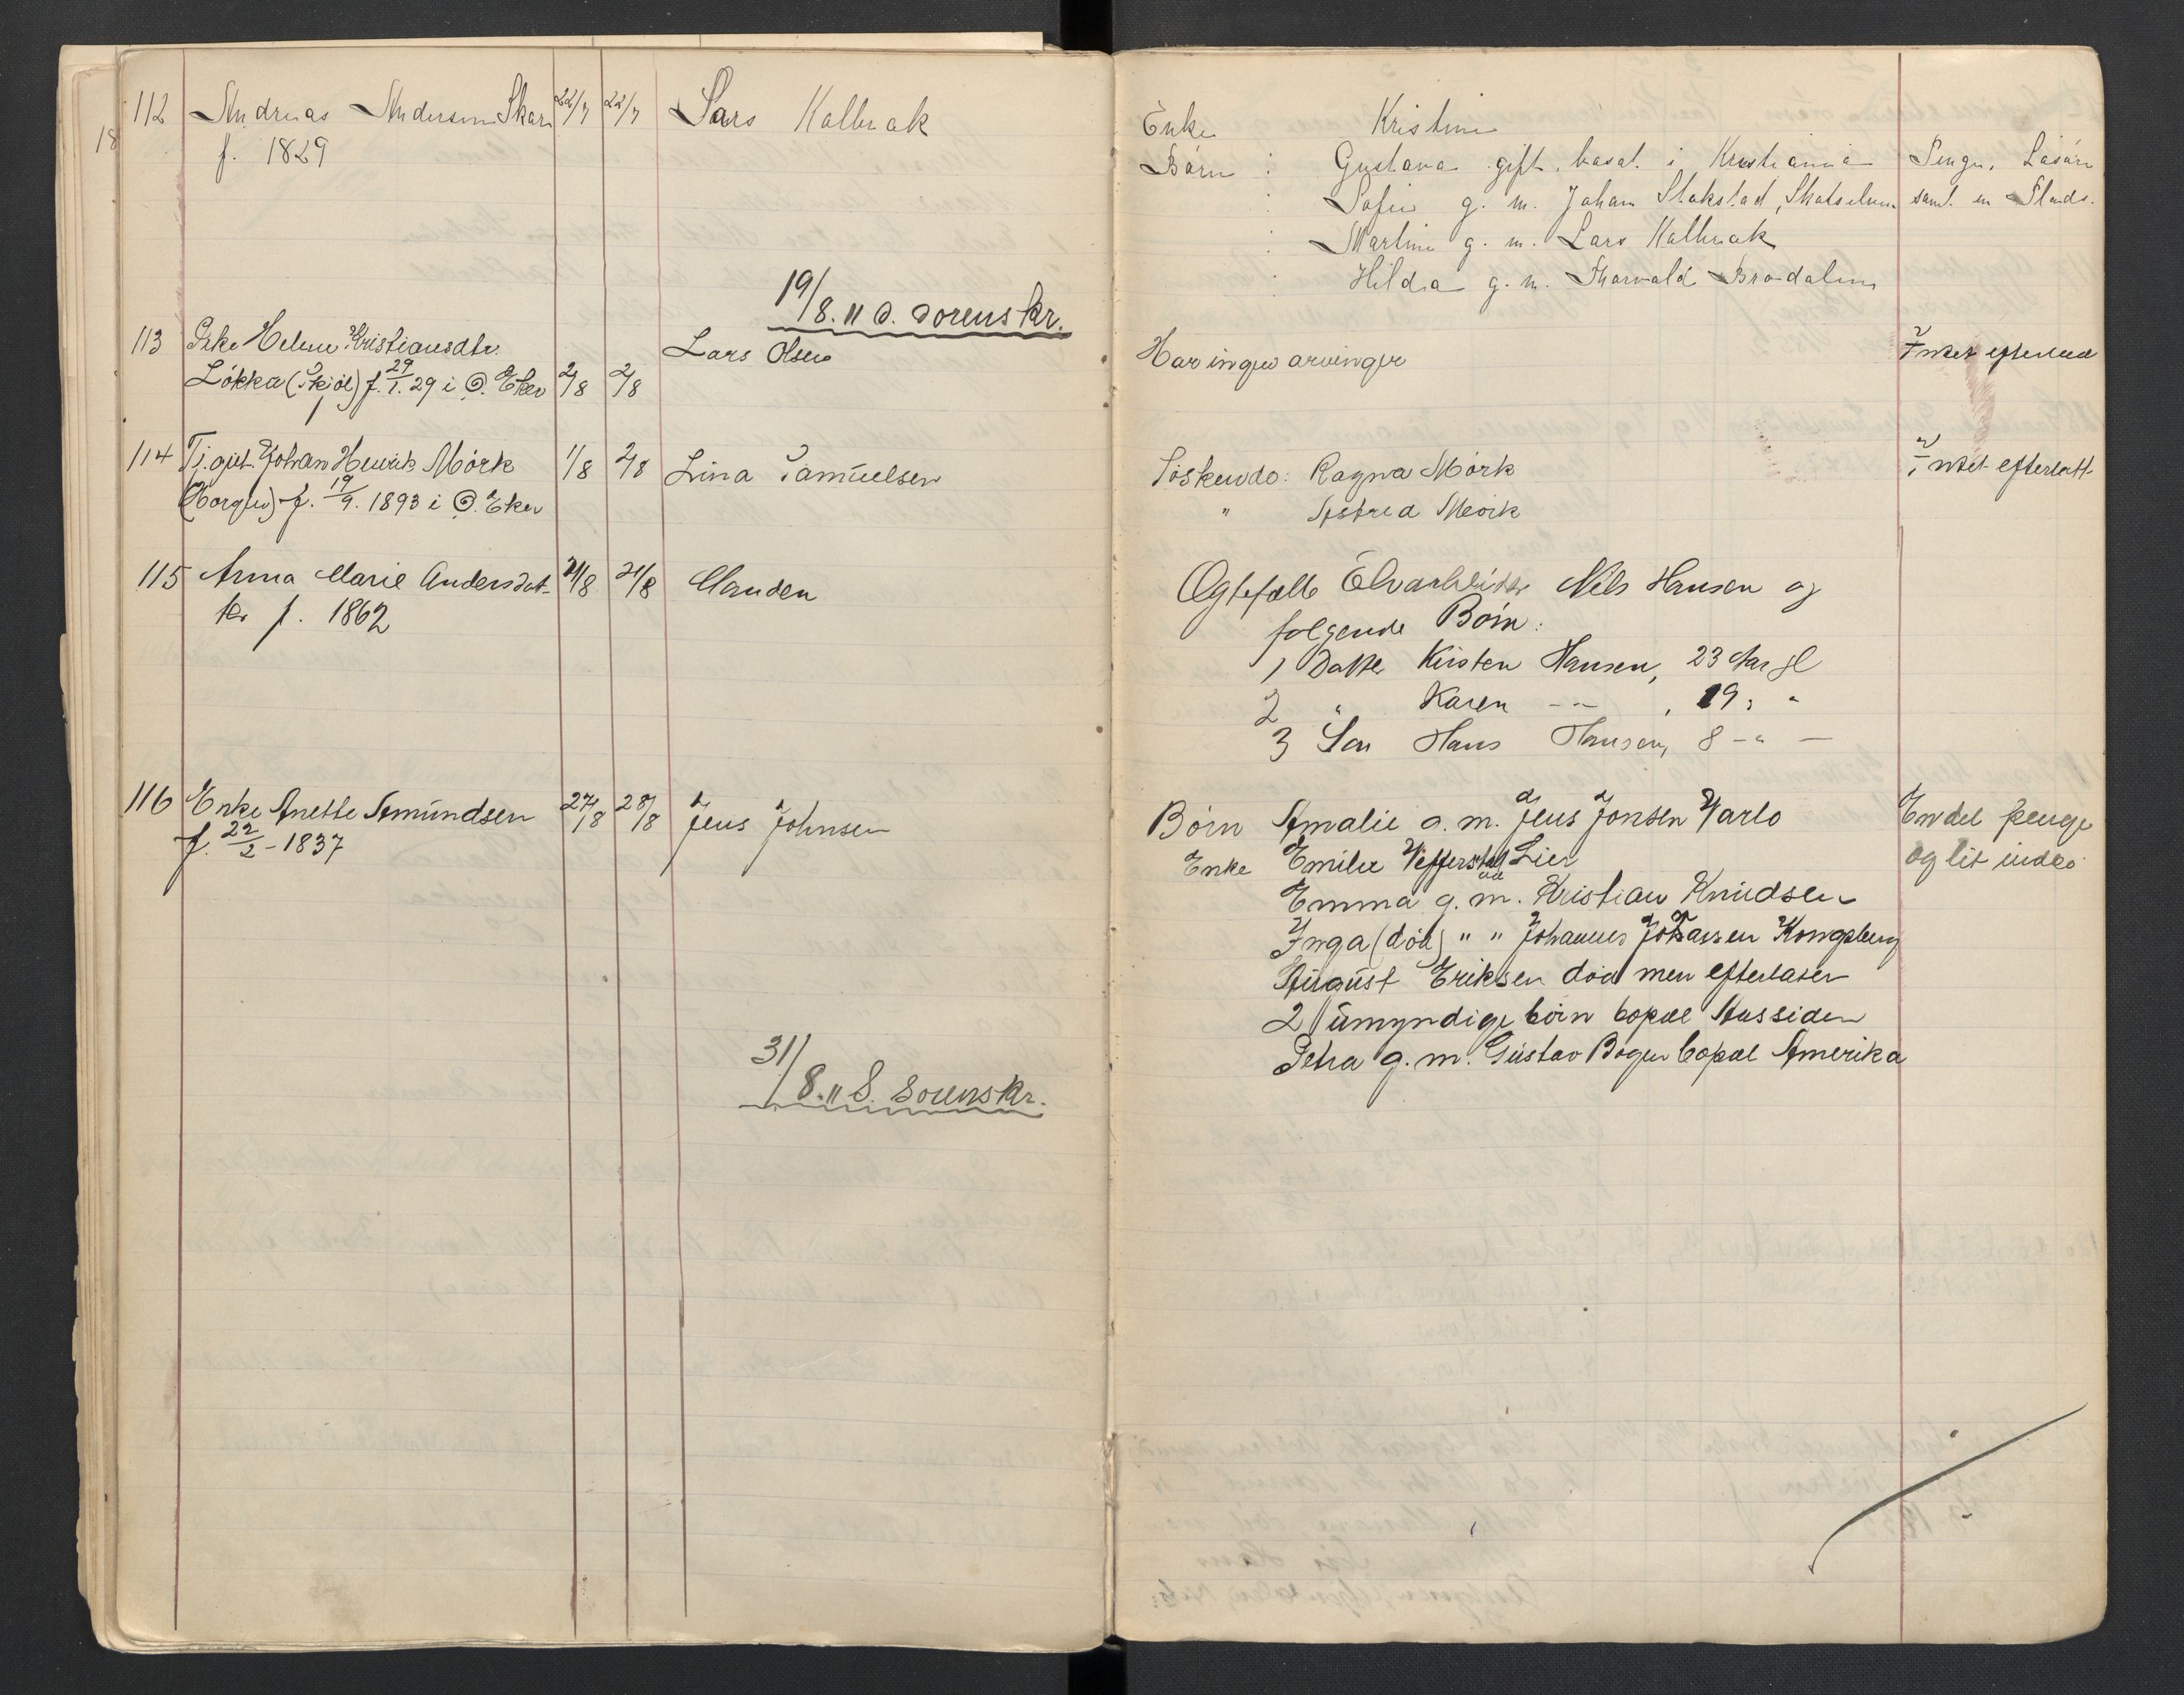 112 Andreas Andersen Skar 22/7 22/7 Lars Kalbrak
18
f. 1829
19/8. 11 S. Sorenskr.
113 Pike Helene Kristiansdtr. Lars Olsen
Løkka (Skjøl) f. 29/1. 29 i Ø. Eker 2/8 2/8
114 Tj.gut. Johan Henrik Mørk 1/8 2/8 Lina Samuelsen
(Horgen) f. 19/9. 1893 i Ø. Eker
115 Anna Marie Andersdat- 21/8 21/8 Manden
ter f. 1862
116 Enke Anette Amundsen 27/8 28/8 Jens Johnsen
f. 22/2 - 1837
31/8. 11 S. Sorenskr.
Enke Kristine
Børn : Gustava gift, bosat i Kristiania Penge, Løsøre
: Sofie g. m. Johan Stokstad, Skotselven samt en Plads.
: Martine g. m. Lars Kalbrak
: Hilda g. m. Thorvald Brodalen
Har ingen arvinger Intet efterlad
Søskende: Ragna Mørk Intet efterlatt
" Astrid Mørk
Ægtefælle Elvarbeider Nils Hansen og
følgende Børn:
1 Datter Kirsten Hansen, 23 Aar gl
2 " Karen - " - , 19 " "
3 Søn Hans Hansen, 8 - " -
Børn Amalie g. m. Jens Jonsen Varlo Endel penge
Enke Emilie Viffersta Lier og lit indbo
Emma g. m. Kristian Knudsen
Inga (død) " " Johannes Johansen Kongsberg
August Eriksen død men efterlater
2 umyndige børn bopæl Aassiden
Petra g. m. Gustav Bøgen bopæl Amerika